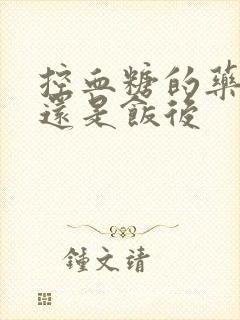 控血糖的藥
還是飯後
鍾文靖